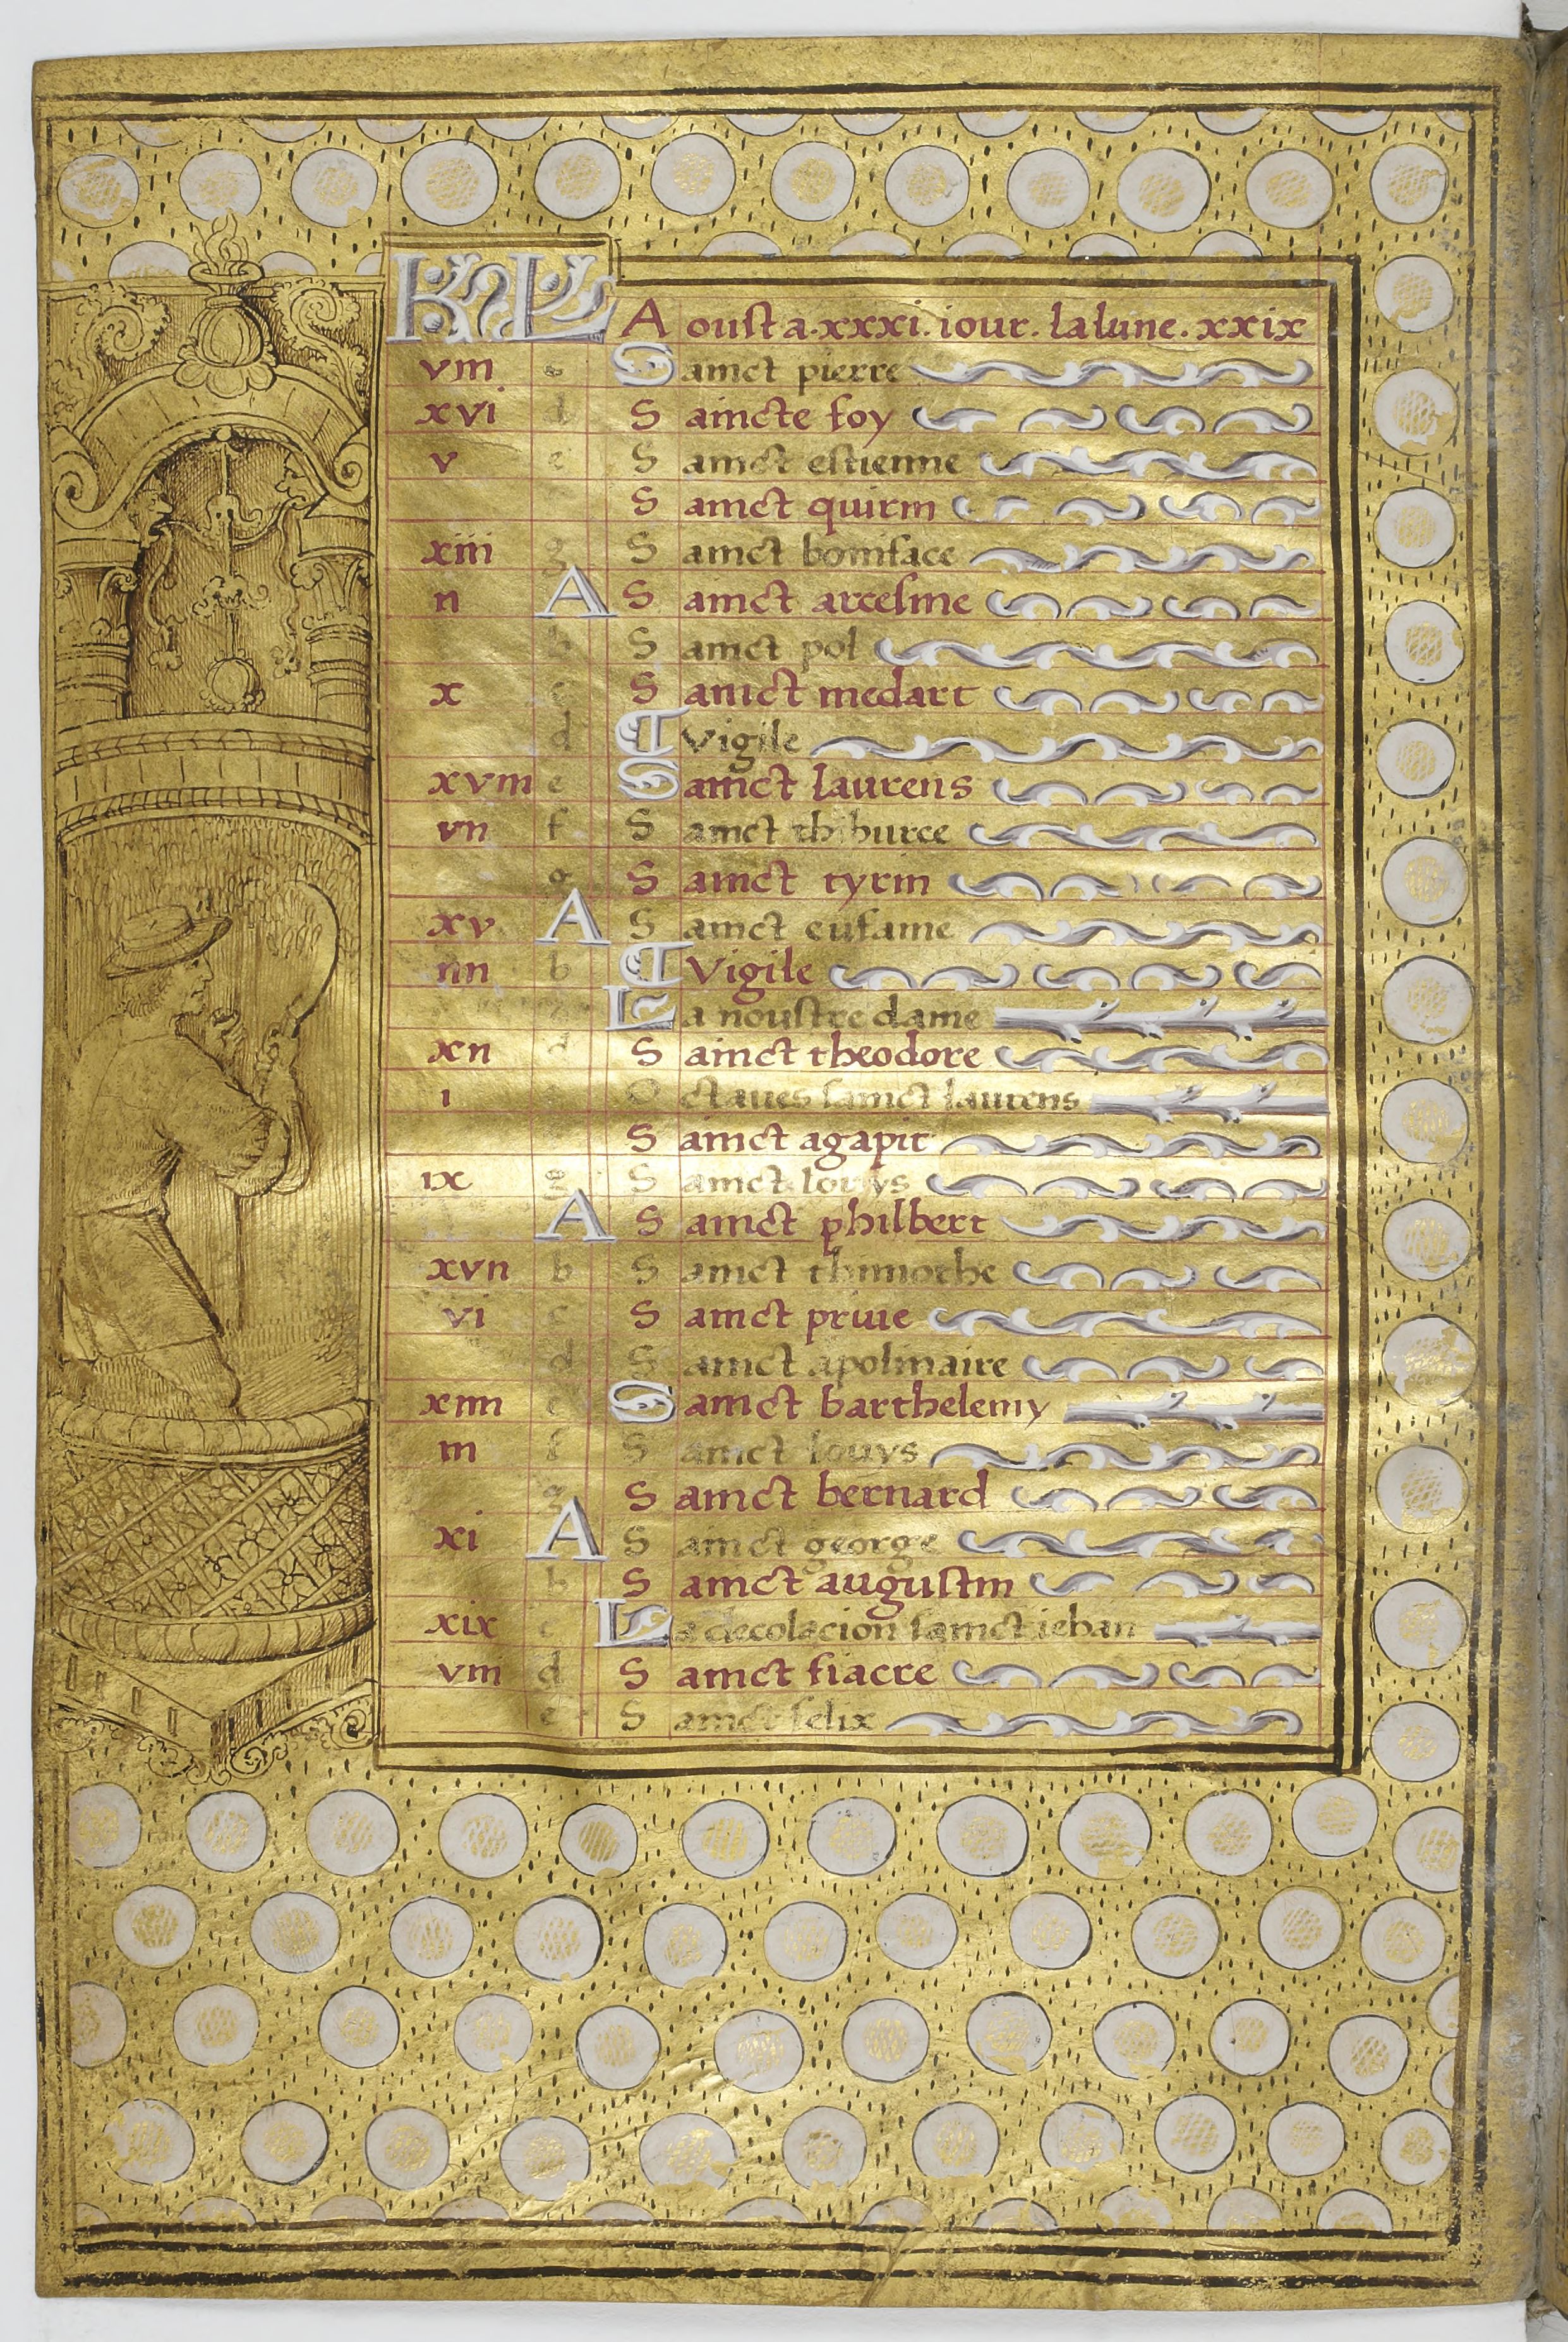 KL Aoust a .xxxi. iour. la lune. xxix
viii c Sainct pierre
xvi d Saincte foy
v e Sainct estienne
Sainct quirin
xiii g Sainct boniface
ii A Sainct arceline
b Sainct pol
x c Sainct medart
d Vigile
xviii e Sainct laurens
vii f Sainct thiburce
g Sainct tyrin
xv A Sainct eufame
iiii b Vigile
La noustre dame
xii d Sainct theodore
i Octaues sainct laurens
Sainct agapit
ix g Sainct louys
A Sainct philbert
xvii b Sainct thimothe
vi c Sainct priue
d Sainct apolinaire
xiiii e Sainct barthelemy
iii f Sainct louys
g Sainct bernard
xi A Sainct george
b Sainct augustin
xix c La decolacion sainct iehan
viii d Sainct fiacre
e Sainct felix